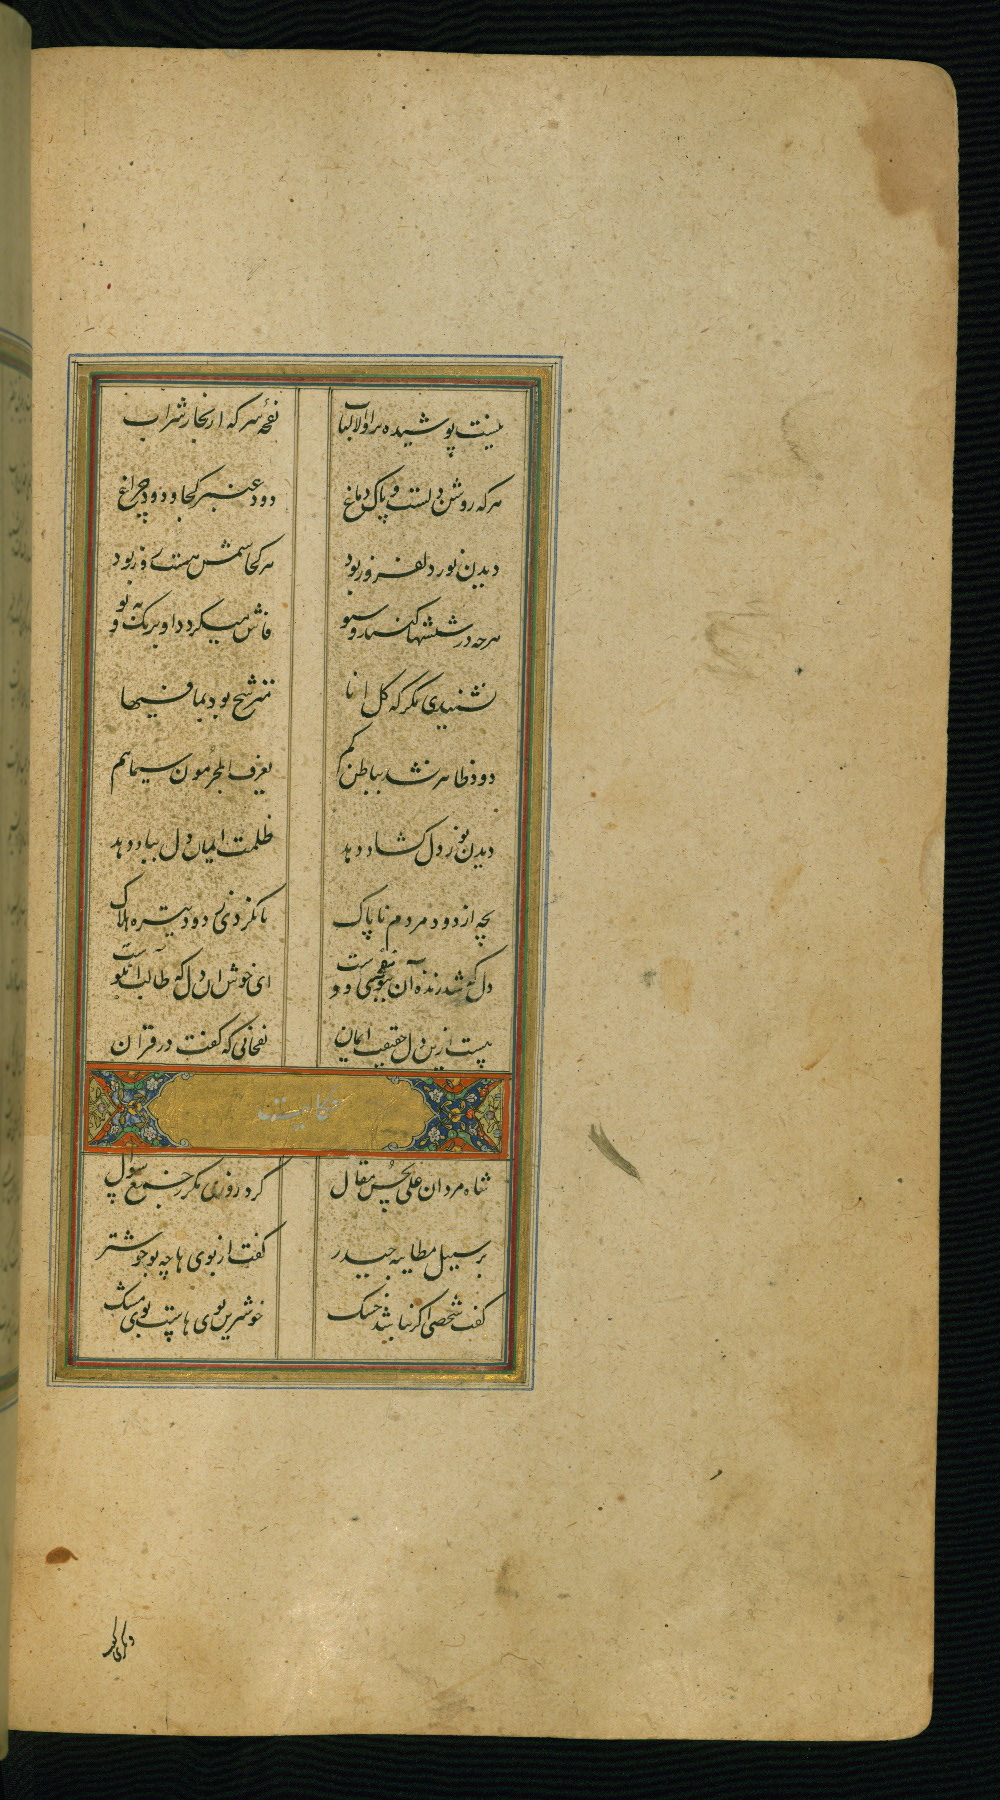 نیست پوشیده بر اولالالباب نفحهٔ سرکه از بخار شراب
هرکه روشن دلست و پاک دماغ دود عنبر کجا و دود چراغ
دیدن نور دلفروز بود هرکجا سمش هستی
هرچه در ششها کنند و سبو فاش میکردد او برنک و به بو
نشنیدی مکر که کل انا مترشح بود بما فیها
دود ظاهر نشد بباطن کم یعرف المجرمون سیماهم
دیدن نور دل کشاد دهد ظلمت ایمان دل بباد دهد
بچه از دود مردم ناپاک دود تیره هلاک
دل که شد زنده آن ای خوش ان دل که طالب
پست ازین دل حقیقت ایمان نفحاتی که کفت در قران
حکایت
شاه مردان علی بحسن مقال کرد روزی مکر ز جمع سوال
بر سبیل مطایبه حیدر کفت از بوی ها چه بو خوشتر
کفت شخصی اکر نباشد خشک خوشترین بوی هاست بوی مشک